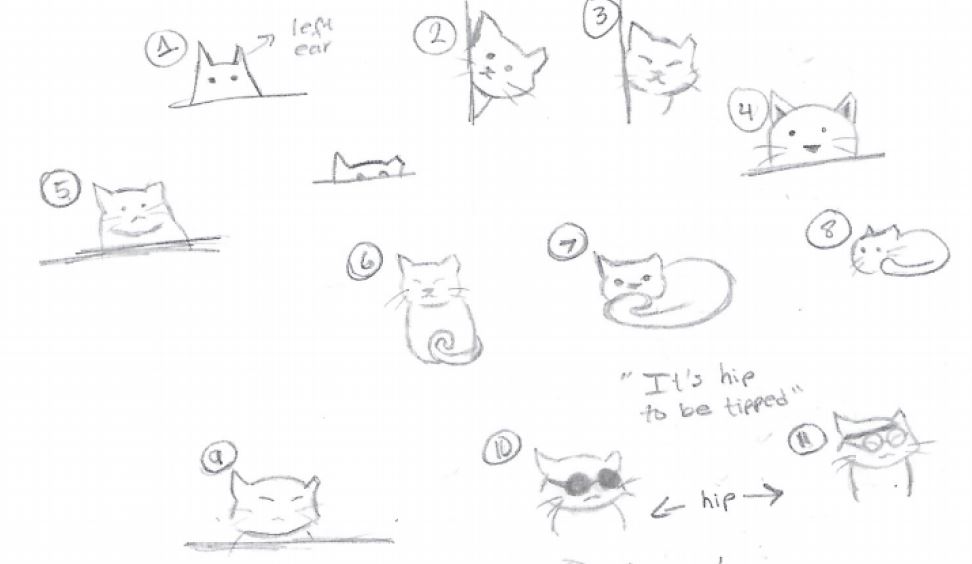 1
left
ear
2
3
4
5
6
7
8
"It's hip
to be tipped"
9
10
← hip →
11